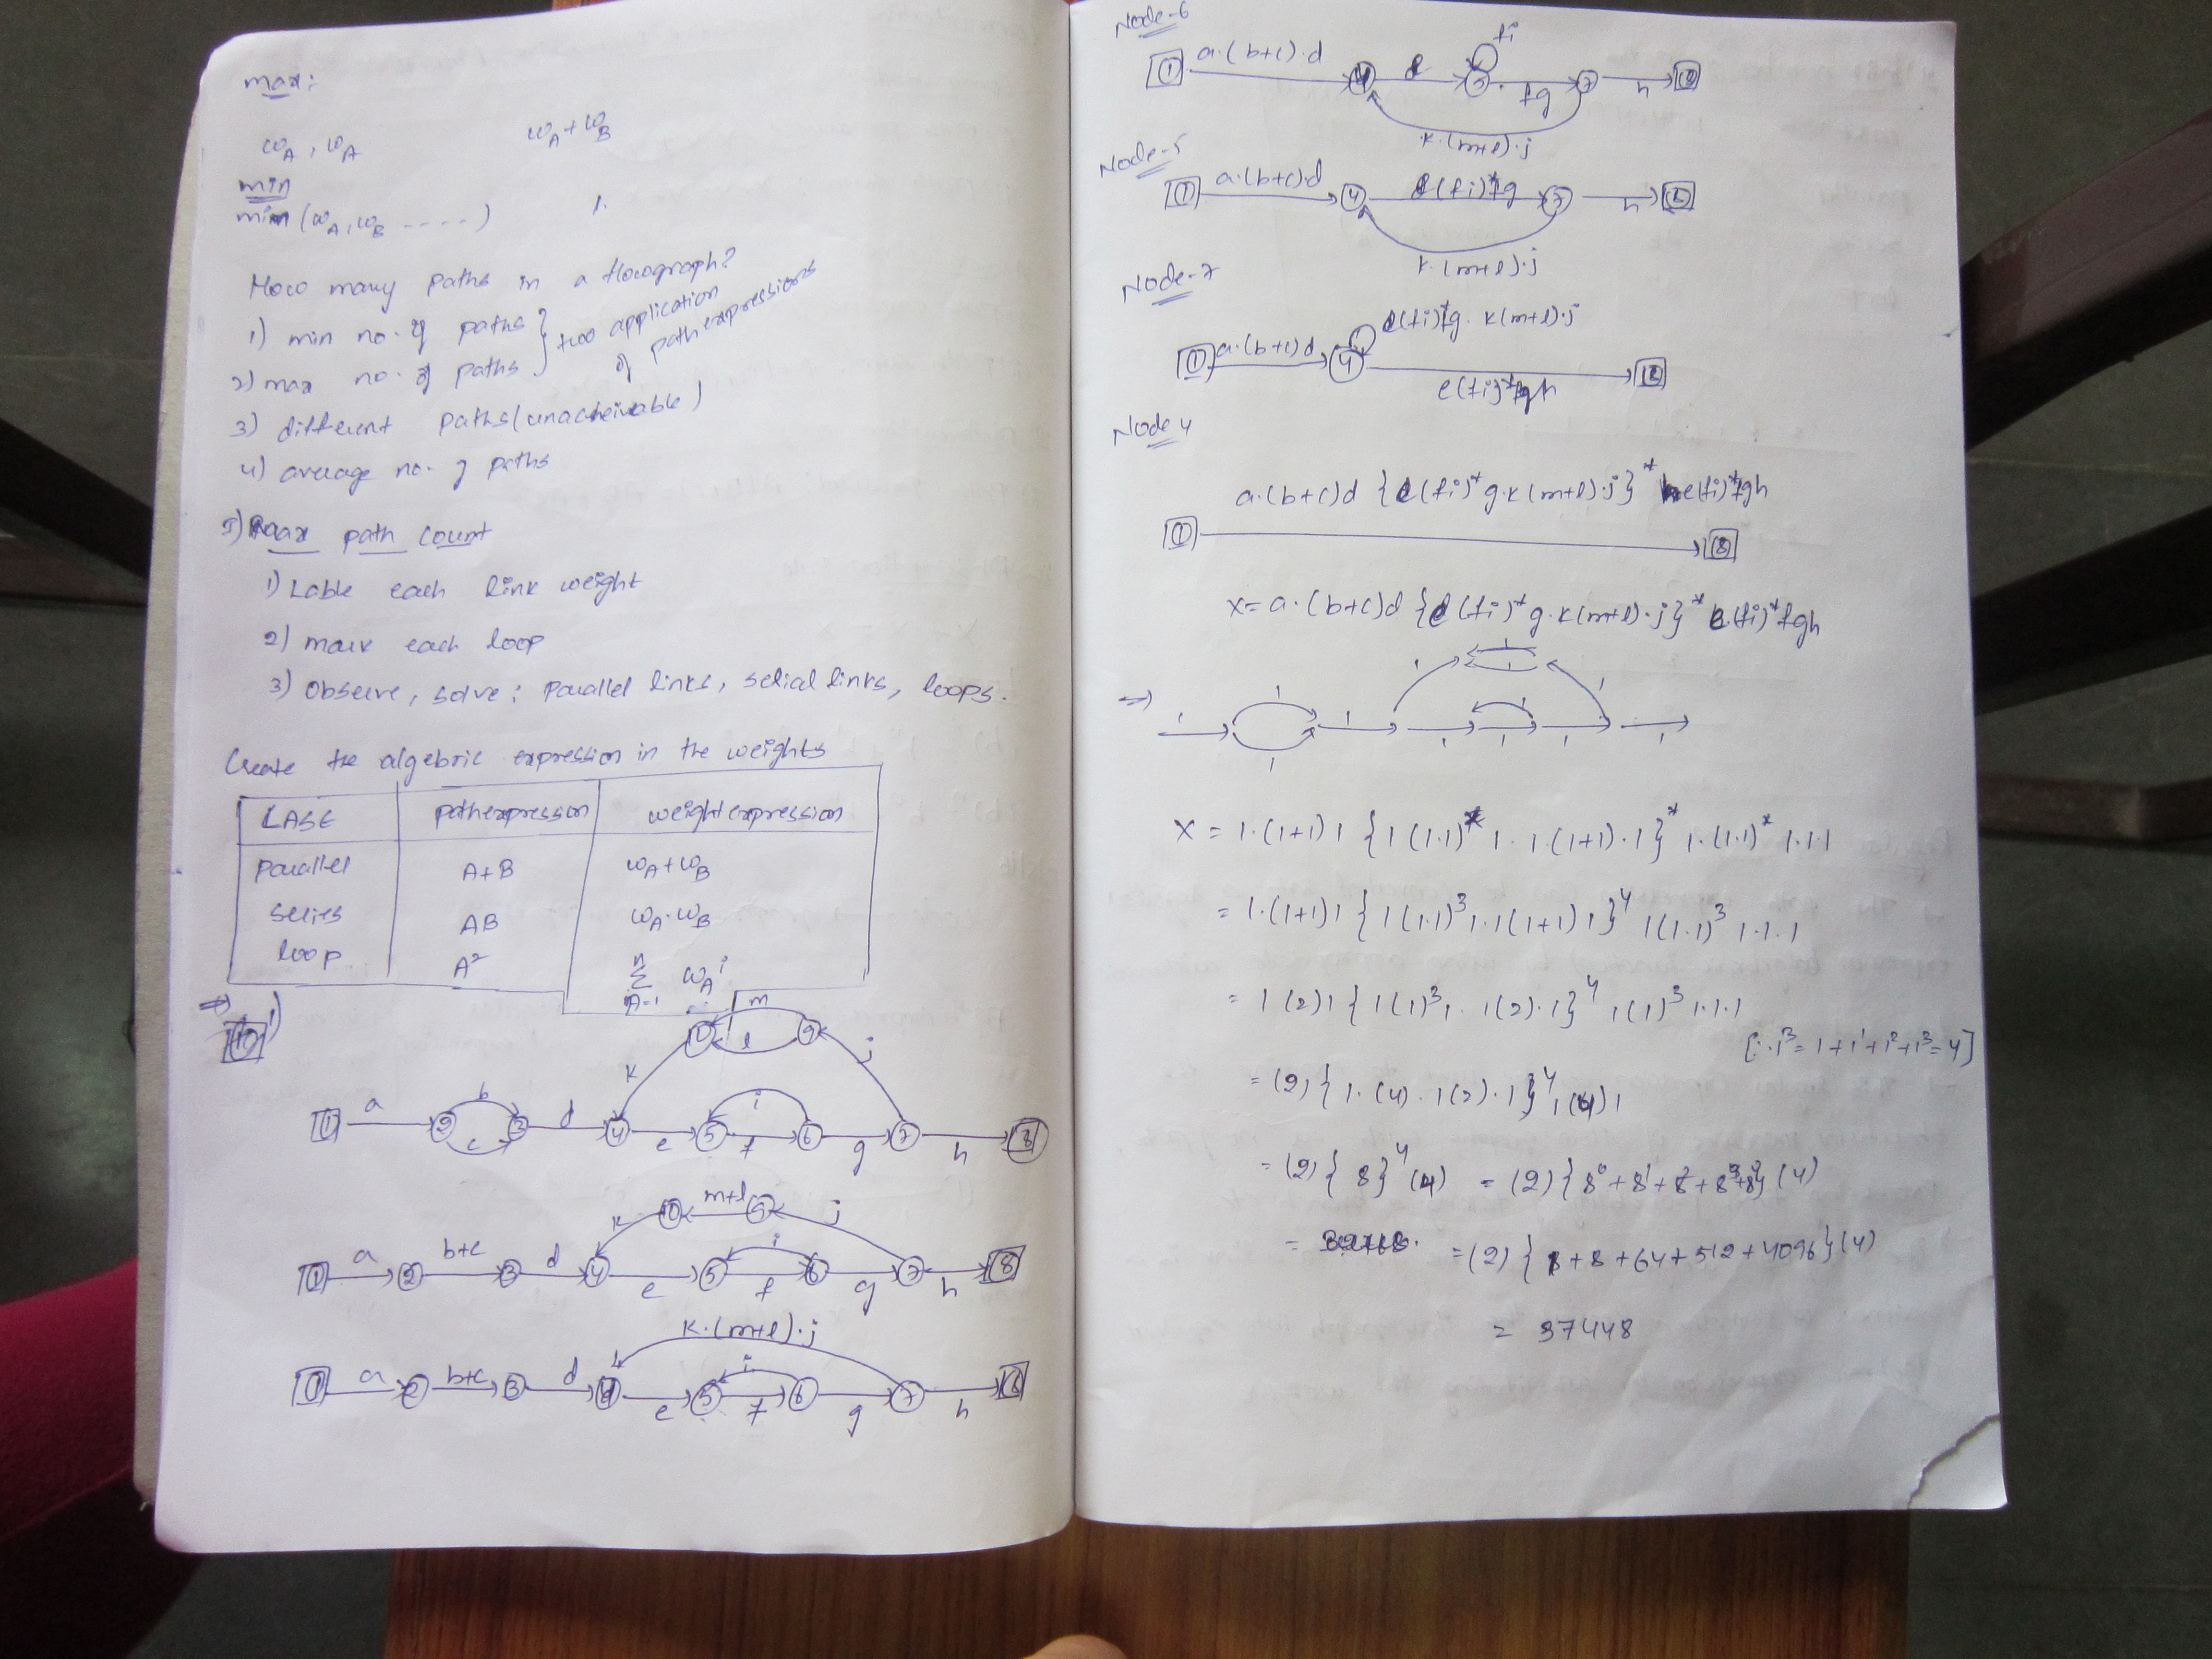 max:
WA, WA
WA + WB
min
min (WA, WB - - - - )
1.
How many paths in a flowgraph?
1) min no. of paths } two application
2) max no. of paths } of path expressions
3) different paths (unacheivable)
4) average no. of paths
5) max path count
1) Lable each link weight
2) mark each loop
3) Observe, solve : parallel links, serial links, loops.
Create the algebric expression in the weights
CASE pathexpression weight expression
parallel A+B WA + WB
series AB WA . WB
loop Aⁿ
1 a 2 b c 3 d 4 e 5 f i 6 g 7 h 8
k l m j
1 a 2 b+c 3 d 4 e 5 f i 6 g 7 h 8
k m+l j
1 a 2 b+c 3 d 4 e 5 f i 6 g 7 h 8
k.(m+l).j
Node-6
1 a.(b+c).d 4 e 5 fg 7 h 8
fi
k.(m+l).j
Node-5
1 a.(b+c)d 4 e(fi)*fg 7 h 8
k.(m+l).j
Node-7
1 a.(b+c)d 4 e(fi)*fgh 8
e(fi)*fg.k(m+l).j
Node 4
a.(b+c)d {e(fi)*g.k(m+l).j}* e(fi)*fgh
1 8
x = a.(b+c)d {e(fi)*g.k(m+l).j}* e.(fi)*fgh
⇒ 1 1 1 1 1 1 1 1
x = 1.(1+1) 1 {1(1.1)* 1.1.(1+1).1}* 1.(1.1)* 1.1.1
= 1.(1+1) 1 {1(1.1)³.1.1(1+1) 1}⁴ 1(1.1)³ 1.1.1
= 1(2) 1 {1(1)³1. 1(2).1}⁴ 1(1)³ 1.1.1
[∵ 1³ = 1+1¹+1²+1³ = 4]
= (2){1.(4).1(2).1}⁴ 1(4)1
= (2){8}⁴(4) = (2){8⁰+8¹+8²+8³+8⁴}(4)
= (2){1+8+64+512+4096}(4)
= 37448